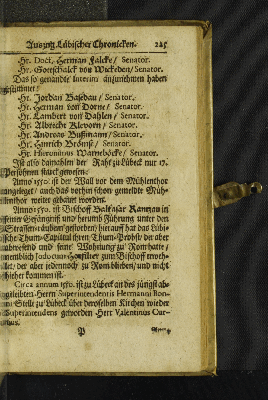 Auszug Lübischer Chronicken. 225
Hr. Doct. Herman Falcke / Senator.
Hr. Gottschalck von Wickeden / Senator.
Das so genandte Interim anzunehmen haben
gestimmet /
Hr. Jordan Basedau / Senator.
Hr. Herman von Dorne / Senator.
Hr. Lambert von Dahlen / Senator.
Hr. Albrecht Klevorn / Senator.
Hr. Andreas Bußmann / Senator.
Hr. Hinrich Brömse / Senator.
Hr. Hieronimus Warneböcke / Senator.
Ist also damahlen der Raht zu Lübeck nur 17.
Persohnen starck gewesen.
Anno 1550. ist der Wall vor dem Mühlenthor
angeleget / auch das vorhin schon gemeldte Müh-
lenthor weiter gebauet worden.
Anno 1550. ist Bischoff Balthasar Rantzau in
seiner Gefängniß und herumb Führung unter den
Strassenräubern gestorben / hierauff hat das Lübi-
sche Thum-Capittul ihren Thum-Probst der aber
abwesend und seine Wohnung zu Rom hatte /
nemblich Jodocum Hodfilter zum Bischoff erweh-
let / der aber jedennoch zu Rom blieben / und nicht
hieher kommen ist.
Circa annum 1550. ist zu Lübeck an des jüngst ab-
geleibten Herrn Superintendentis Hermanni Bon-
ni Stelle zu Lübeck über deroselben Kirchen wieder
Superintendens geworden Herr Valentinus Cur-
tius.
P Anno